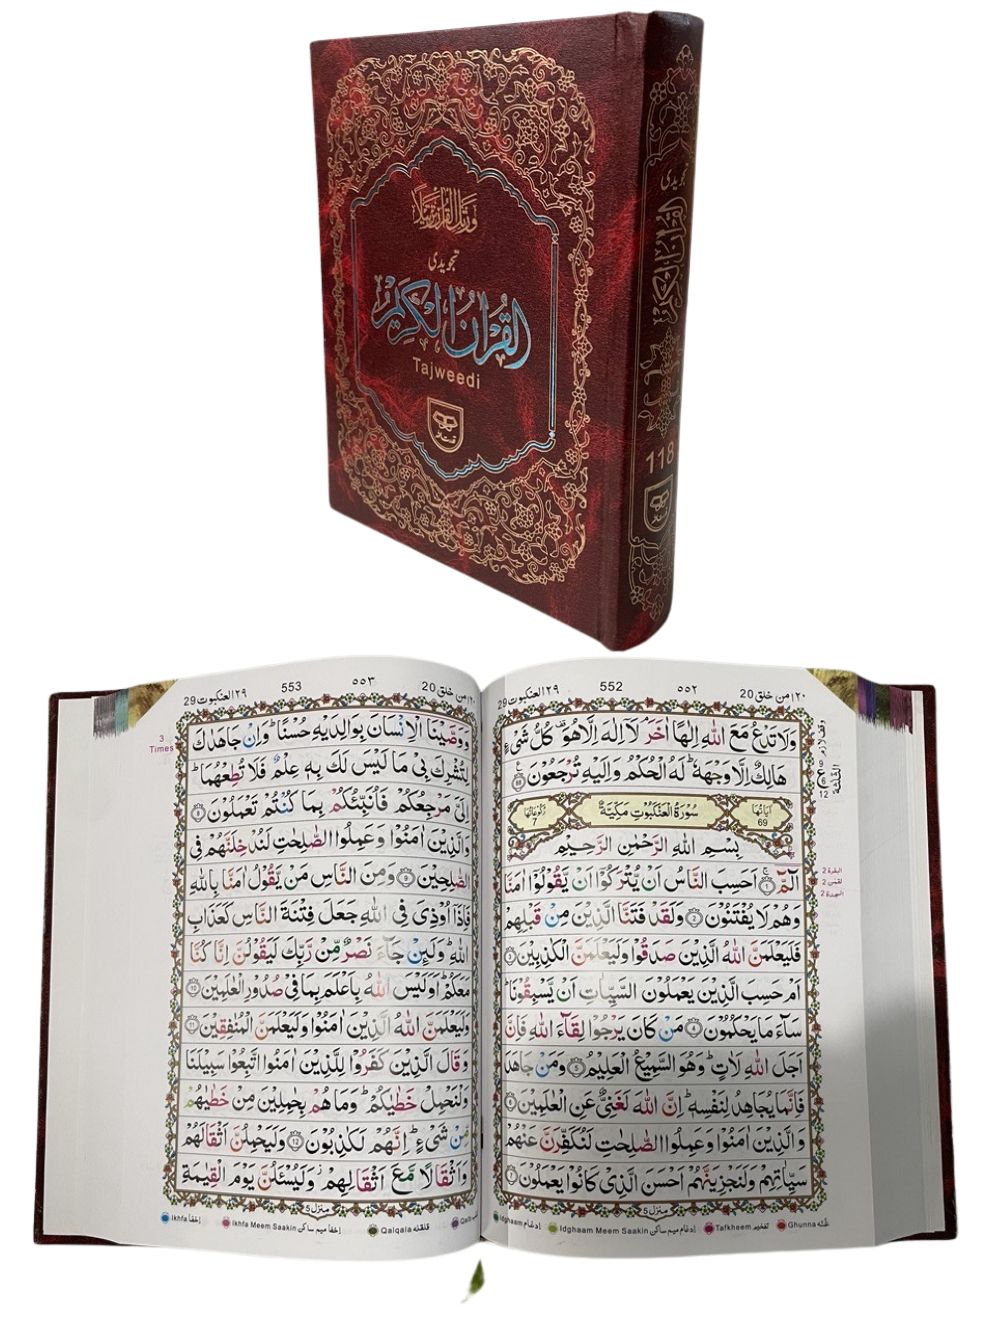 ورتل القرآن ترتيلا
تجويدى
القرآن الكريم
Tajweedi
تجويدى
القرآن الكريم
118
29 العنكبوت ٢٩
553
٥٥٣
20 من خلق ٢٠
3
Times
وَوَصَّيْنَا الْاِنْسَانَ بِوَالِدَيْهِ حُسْنًا ؕ وَاِنْ جَاهَدٰكَ
لِتُشْرِكَ بِىْ مَا لَيْسَ لَكَ بِهٖ عِلْمٌ فَلَا تُطِعْهُمَا ؕ
اِلَىَّ مَرْجِعُكُمْ فَاُنَبِّئُكُمْ بِمَا كُنْتُمْ تَعْمَلُوْنَ ۝٨
وَالَّذِيْنَ اٰمَنُوْا وَعَمِلُوا الصّٰلِحٰتِ لَنُدْخِلَنَّهُمْ فِى
الصّٰلِحِيْنَ ۝٩ وَمِنَ النَّاسِ مَنْ يَّقُوْلُ اٰمَنَّا بِاللّٰهِ
فَاِذَاۤ اُوْذِىَ فِى اللّٰهِ جَعَلَ فِتْنَةَ النَّاسِ كَعَذَابِ
اللّٰهِ ؕ وَلَئِنْ جَآءَ نَصْرٌ مِّنْ رَّبِّكَ لَيَقُوْلُنَّ اِنَّا كُنَّا
مَعَكُمْ ؕ اَوَلَيْسَ اللّٰهُ بِاَعْلَمَ بِمَا فِىْ صُدُوْرِ الْعٰلَمِيْنَ ۝١٠
وَلَيَعْلَمَنَّ اللّٰهُ الَّذِيْنَ اٰمَنُوْا وَلَيَعْلَمَنَّ الْمُنٰفِقِيْنَ ۝١١
وَقَالَ الَّذِيْنَ كَفَرُوْا لِلَّذِيْنَ اٰمَنُوا اتَّبِعُوْا سَبِيْلَنَا
وَلْنَحْمِلْ خَطٰيٰكُمْ ؕ وَمَا هُمْ بِحٰمِلِيْنَ مِنْ خَطٰيٰهُمْ
مِّنْ شَىْءٍ ؕ اِنَّهُمْ لَكٰذِبُوْنَ ۝١٢ وَلَيَحْمِلُنَّ اَثْقَالَهُمْ
وَاَثْقَالًا مَّعَ اَثْقَالِهِمْ ؗ وَلَيُسْئَلُنَّ يَوْمَ الْقِيٰمَةِ
منزل ٥
Ikhfa اخفا
Ikhfa Meem Saakin اخفا ميم ساكن
Qalqala قلقله
29 العنكبوت ٢٩
552
٥٥٢
20 من خلق ٢٠
وَلَا تَدْعُ مَعَ اللّٰهِ اِلٰهًا اٰخَرَ ۘ لَاۤ اِلٰهَ اِلَّا هُوَ ۟ كُلُّ شَىْءٍ
هَالِكٌ اِلَّا وَجْهَهٗ ؕ لَهُ الْحُكْمُ وَاِلَيْهِ تُرْجَعُوْنَ ۝٨٨
اٰيَاتُهَا 69
سُوْرَةُ الْعَنْكَبُوْتِ مَكِّيَّةٌ
رُكُوْعَاتُهَا 7
بِسْمِ اللّٰهِ الرَّحْمٰنِ الرَّحِيْمِ
الٓمّٓ ۝١ اَحَسِبَ النَّاسُ اَنْ يُّتْرَكُوْۤا اَنْ يَّقُوْلُوْۤا اٰمَنَّا
وَهُمْ لَا يُفْتَنُوْنَ ۝٢ وَلَقَدْ فَتَنَّا الَّذِيْنَ مِنْ قَبْلِهِمْ
فَلَيَعْلَمَنَّ اللّٰهُ الَّذِيْنَ صَدَقُوْا وَلَيَعْلَمَنَّ الْكٰذِبِيْنَ ۝٣
اَمْ حَسِبَ الَّذِيْنَ يَعْمَلُوْنَ السَّيِّاٰتِ اَنْ يَّسْبِقُوْنَا ؕ
سَآءَ مَا يَحْكُمُوْنَ ۝٤ مَنْ كَانَ يَرْجُوْا لِقَآءَ اللّٰهِ فَاِنَّ
اَجَلَ اللّٰهِ لَاٰتٍ ؕ وَهُوَ السَّمِيْعُ الْعَلِيْمُ ۝٥ وَمَنْ جَاهَدَ
فَاِنَّمَا يُجَاهِدُ لِنَفْسِهٖ ؕ اِنَّ اللّٰهَ لَغَنِىٌّ عَنِ الْعٰلَمِيْنَ ۝٦
وَالَّذِيْنَ اٰمَنُوْا وَعَمِلُوا الصّٰلِحٰتِ لَنُكَفِّرَنَّ عَنْهُمْ
سَيِّاٰتِهِمْ وَلَنَجْزِيَنَّهُمْ اَحْسَنَ الَّذِىْ كَانُوْا يَعْمَلُوْنَ ۝٧
منزل ٥
Idghaam ادغام
Idghaam Meem Saakin ادغام ميم ساكن
Tafkheem تفخيم
Ghunna غنه
وقف لازم
9
12
البقرة 2
لقمن 2
السجدة 2